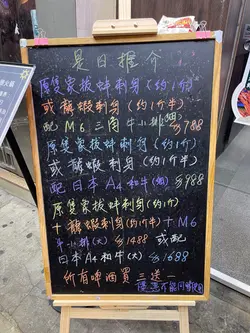 是日推介
原隻象拔蚌刺身(約1斤)
或龍蝦刺身(約1斤半)
配M6三角牛小排(細)$788
原隻象拔蚌刺身(約1斤)
或龍蝦刺身(約1斤半)
配日本A4和牛(細)$988
原隻象拔蚌刺身(約1斤)
+龍蝦刺身(約1斤半)+M6
牛小排(大)$1488 或配
日本A4和牛(大)$1688
所有啤酒買三送一
優惠不能同時使用